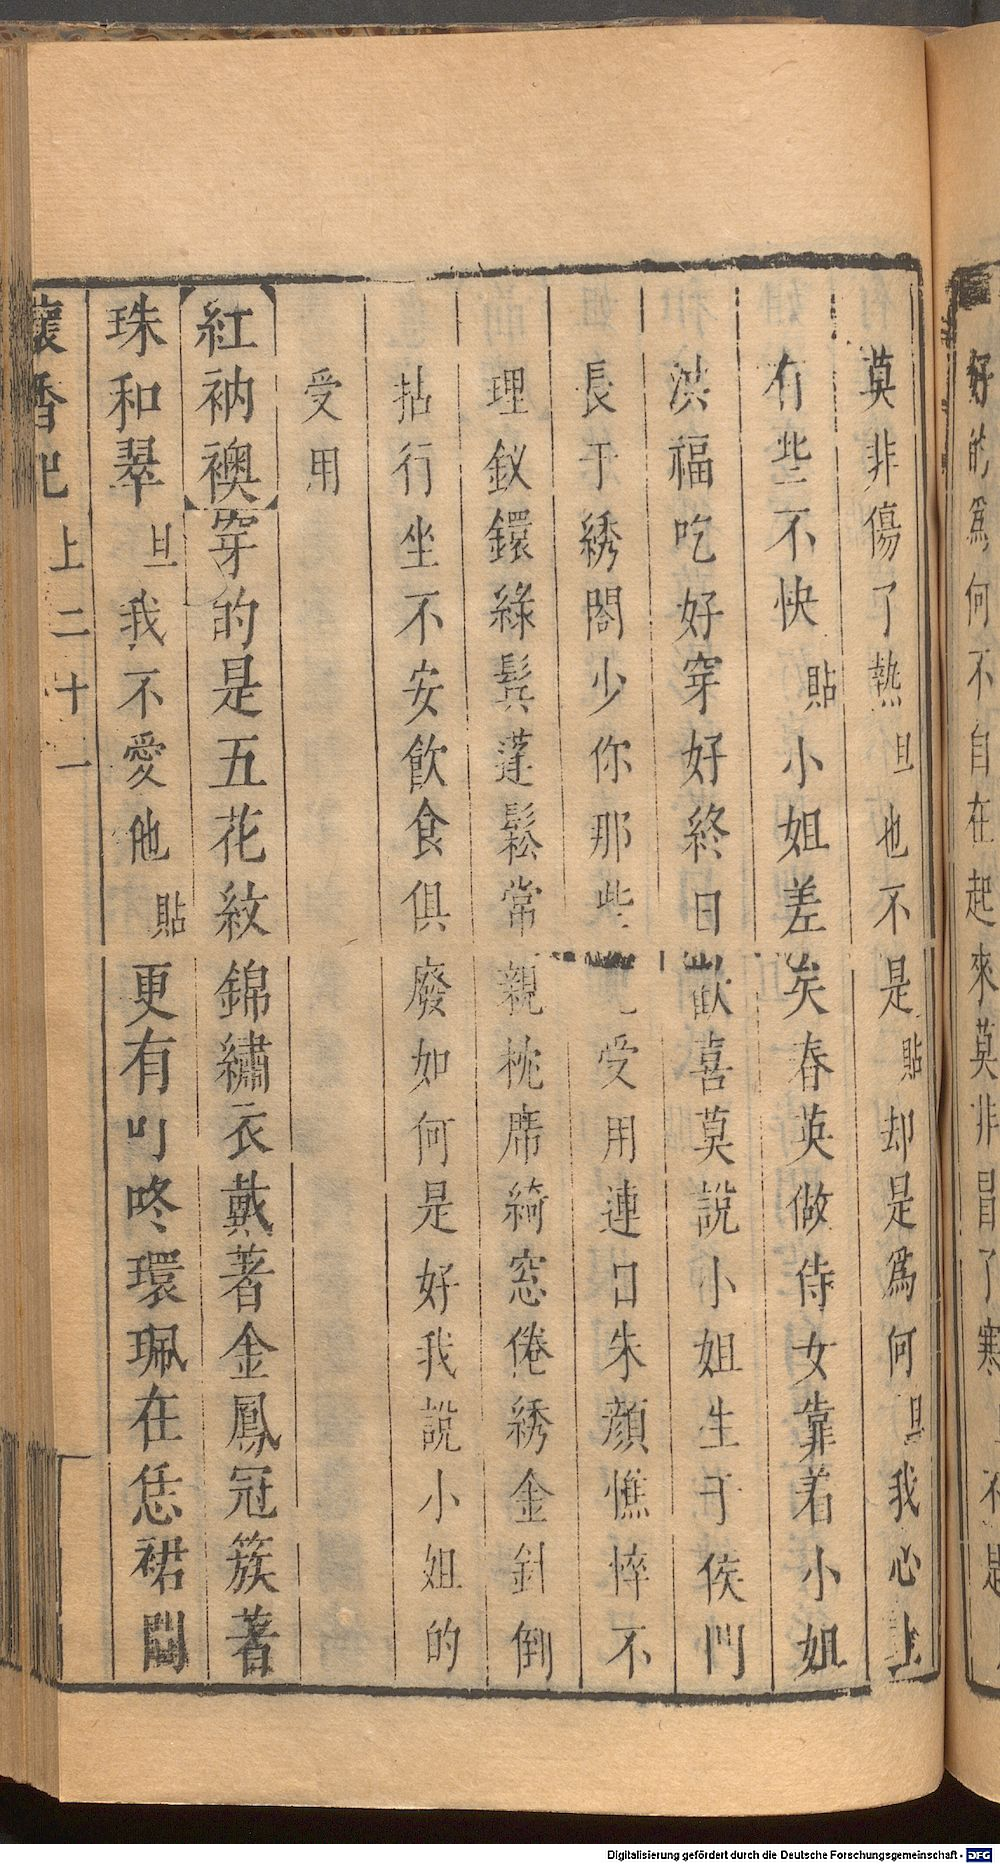 好的爲何不自在起來莫非冒了寒
莫非傷了熱旦也不是貼却是爲何旦我心上
有些不快貼小姐差矣春英做侍女靠着小姐
洪福吃好穿好終日歡喜莫說小姐生于侯門
長于綉閣少你那些受用連日朱顔憔悴不
理釵鐶綠鬂蓬鬆常親枕席綺窓倦綉金針倒
拈行坐不安飲食俱廢如何是好我說小姐的
受用
紅衲襖穿的是五花紋錦繡衣戴著金鳳冠簇著
珠和翠旦我不愛他貼更有叮咚環珮在恁裙間
懷香記上二十一
Digitalisierung gefördert durch die Deutsche Forschungsgemeinschaft - DFG